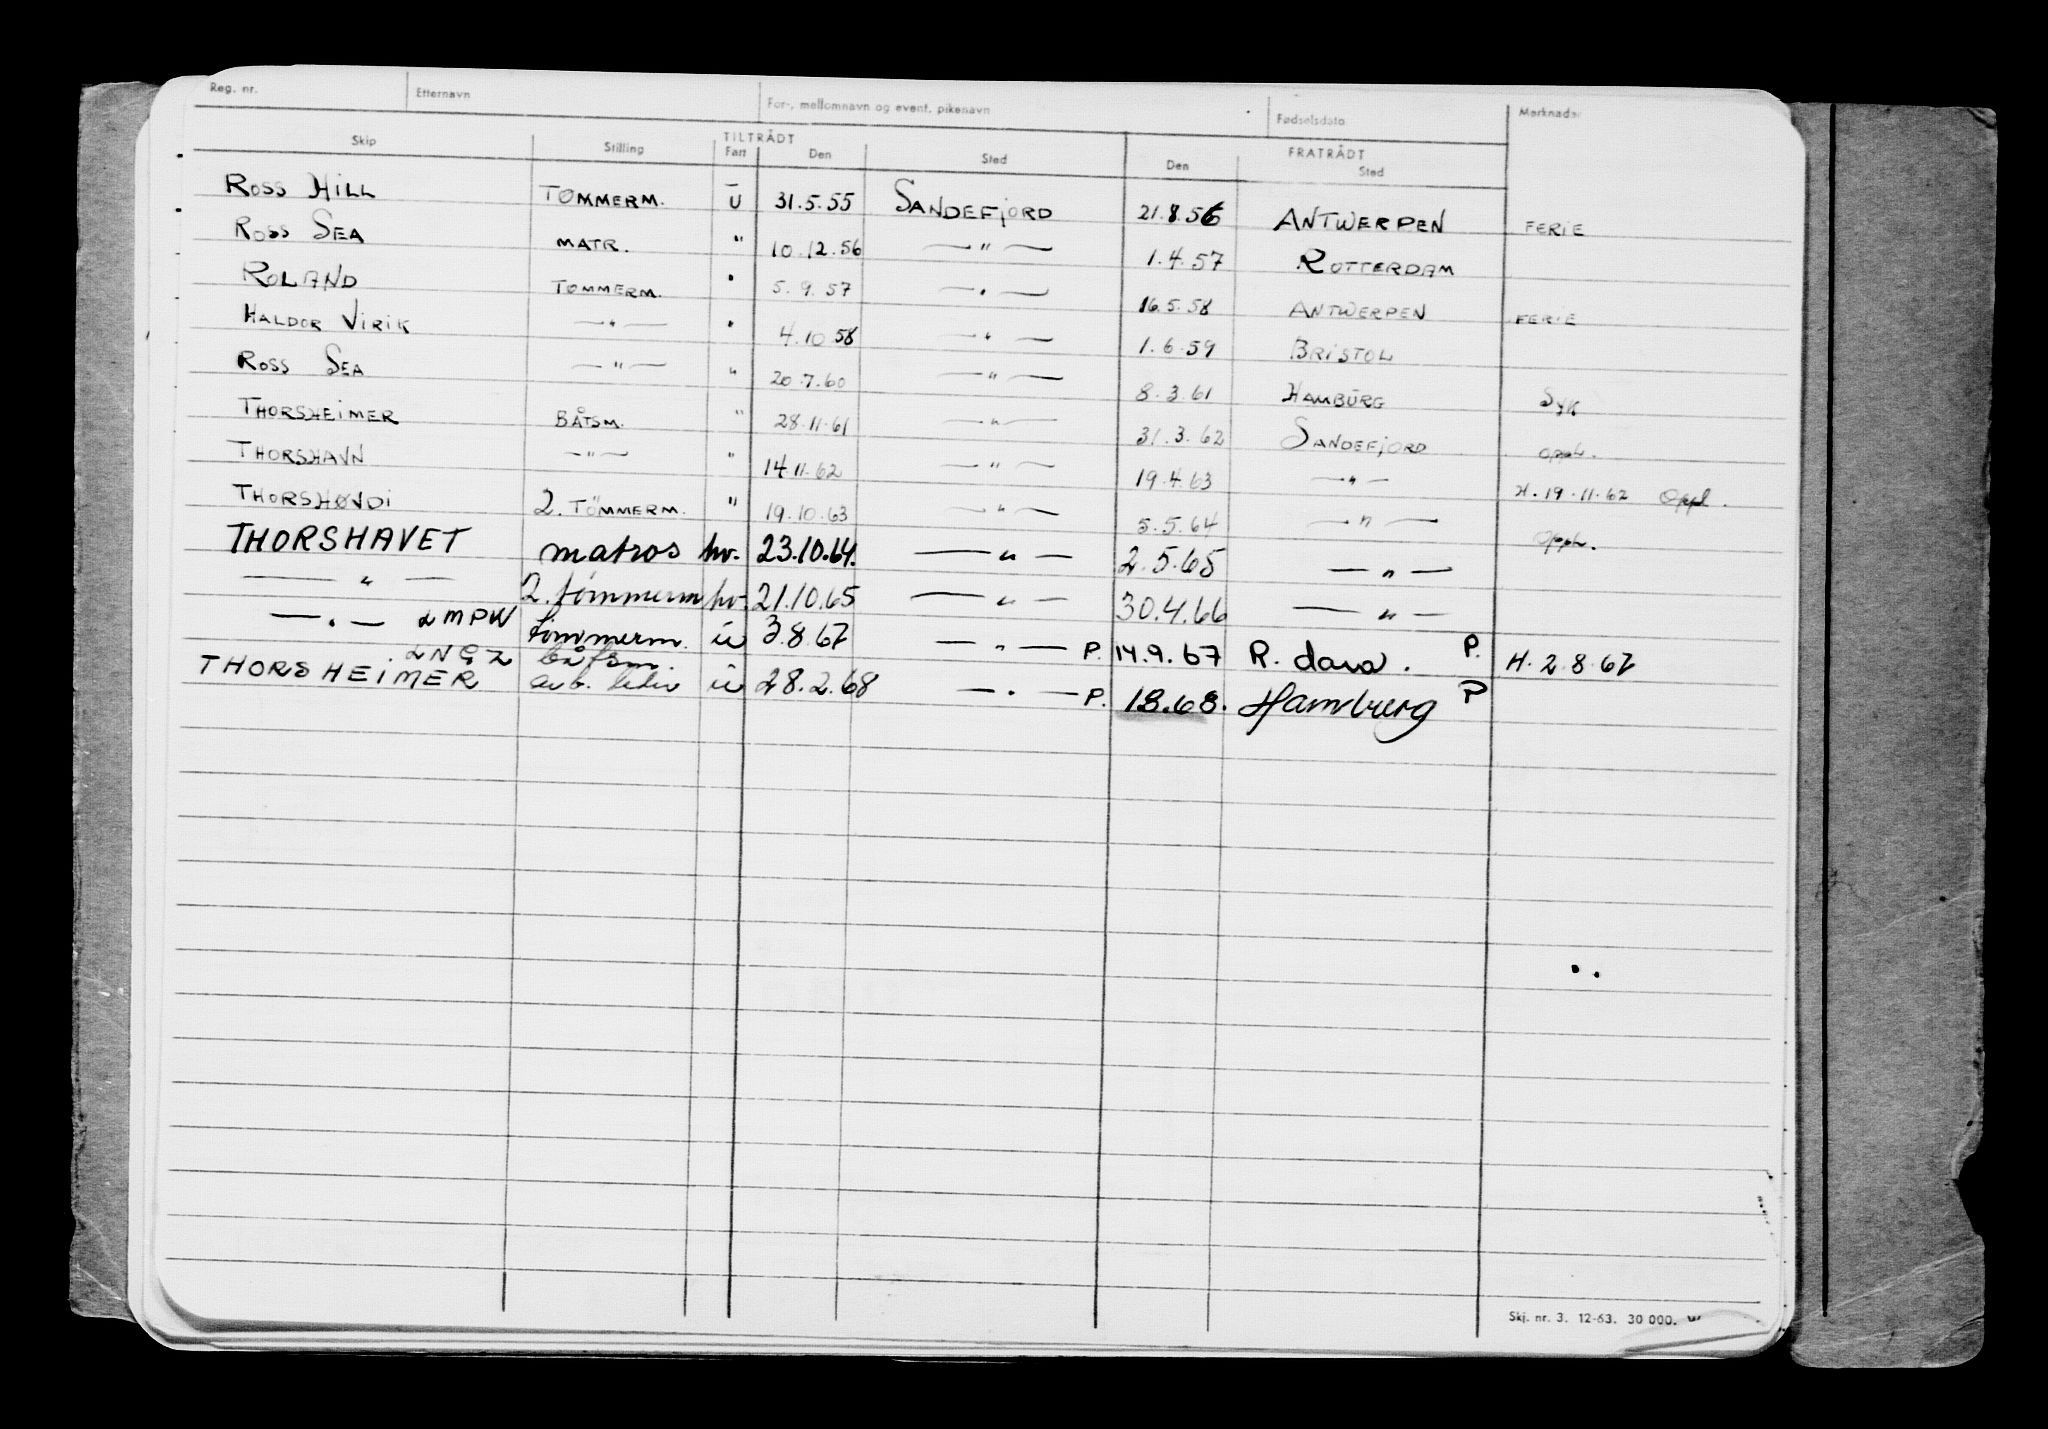 Reg. nr. Etternavn For-, mellomnavn og event. pikenavn Fødselsdato Merknader
TILTRÅDT FRATRÅDT
Skip Stilling Fart Den Sted Den Sted
ROSS HILL TØMMERM. U 31.5.55 SANDEFJORD 21.8.56 ANTWERPEN FERIE
ROSS SEA MATR. " 10.12.56 —"— 1.4.57 ROTTERDAM
ROLAND TØMMERM. " 5.9.57 —"— 16.5.58 ANTWERPEN FERIE
HALDOR VIRIK —"— " 4.10.58 —"— 1.6.59 BRISTOL
ROSS SEA —"— " 20.7.60 —"— 8.3.61 HAMBURG SYK
THORSHEIMER BÅTSM. " 28.11.61 —"— 31.3.62 SANDEFJORD opph.
THORSHAVN —"— " 14.11.62 —"— 19.4.63 —"— H. 19.11.62 Oppl.
THORSHØVDI 2. TÖMMERM. " 19.10.63 —"— 5.5.64 —"— Opph.
THORSHAVET matros hv. 23.10.64. —"— 2.5.65 —"—
—"— 2. tømmerm hv. 21.10.65 —"— 30.4.66 —"—
—"— LMPW tömmerm. ü 3.8.67 —"— P. 14.9.67 R. dava. P. H. 2.8.67
LNGZ båtsm.
THORSHEIMER arb. leder ü 28.2.68 —"— P. 1.8.68. Hamburg P
Skj. nr. 3. 12-63. 30 000. W